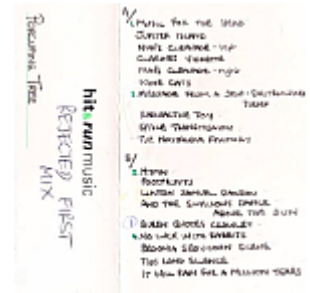 PORCUPINE TREE
hit&run music
REJECTED FIRST
MIX
A/
1. MUSIC FOR THE HEAD
JUPITER ISLAND
NUN'S CLEAVAGE
CLARINET VIGNETTE
NUN'S CLEAVAGE
SPACE CATS
2. MESSAGE FROM A SELF-DESTRUCTING
TURNIP
RADIOACTIVE TOY
TOWEL
THE
B/
HYMN
FOOTPRINTS
LINTON SAMUEL DAWSON
AND THE SWALLOWS DANCE
ABOVE THE SUN
QUEEN QUOTES CROWLEY
NO LUCK WITH RABBITS
BEGONIA SEDUCTION SCENE
THIS LONG SILENCE
IT WILL RAIN FOR A MILLION YEARS